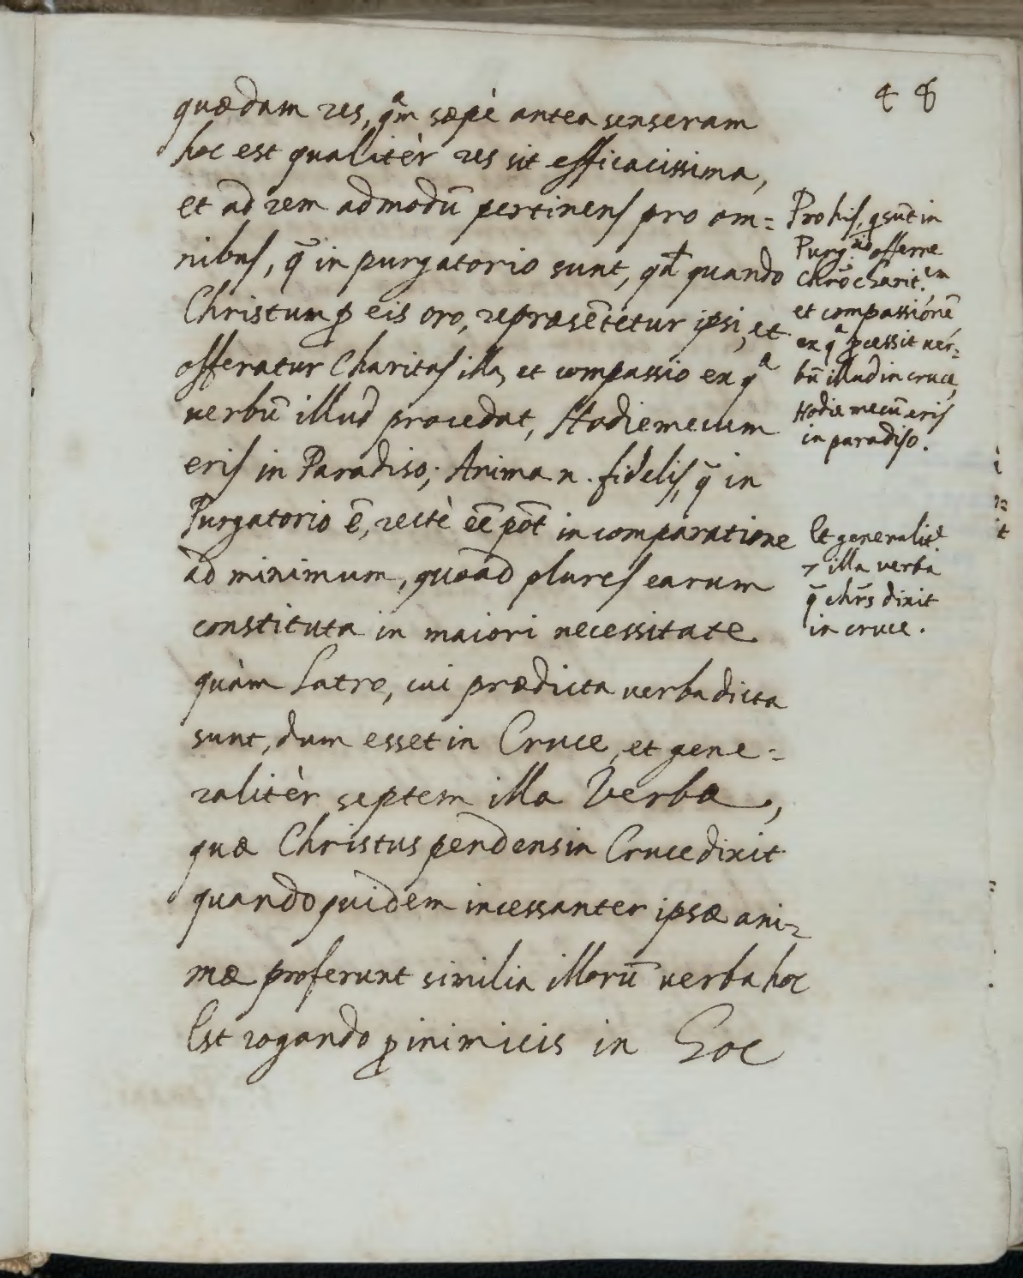 48
quædam res, qᵃm sæpè antea senseram
hoc est qualitèr res sit efficacissima,
et ad rem admodū pertinens pro om=
nibus, q̄ in purgatorio sunt, qd quando
Christum ꝑ eis oro, repræsētetur ipsi, et
offeratur Charitas illa, et compassio ex qᵃ
uerbū illud procedat, Hodie mecum
eris in Paradiso; Anima n. fidelis, q̄ in
Purgatorio ē, rectè eē pōt in comparatione
ad minimum, quoad plures earum
constituta in maiori necessitate
quàm Latro, cui prædicta uerba dicta
sunt, dum esset in Cruce, et gene=
ralitèr septem illa Verba,
quæ Christus pendens in Cruce dixit
quando quidem incessanter ipsæ ani=
mæ proferunt similia illorū uerba hoc
Est rogando ꝑ inimicis in hoc
Pro his, q sūt in
Purg.ᵒ offerre
Chrō charit.ᵉᵐ
et compassionē
ex qᵃ ꝓcessit uer=
bū illud in cruce,
Hodie mecū eris
in paradiso.
Et generalit.
7 illa uerba
q̄ chr̄s dixit
in cruce.